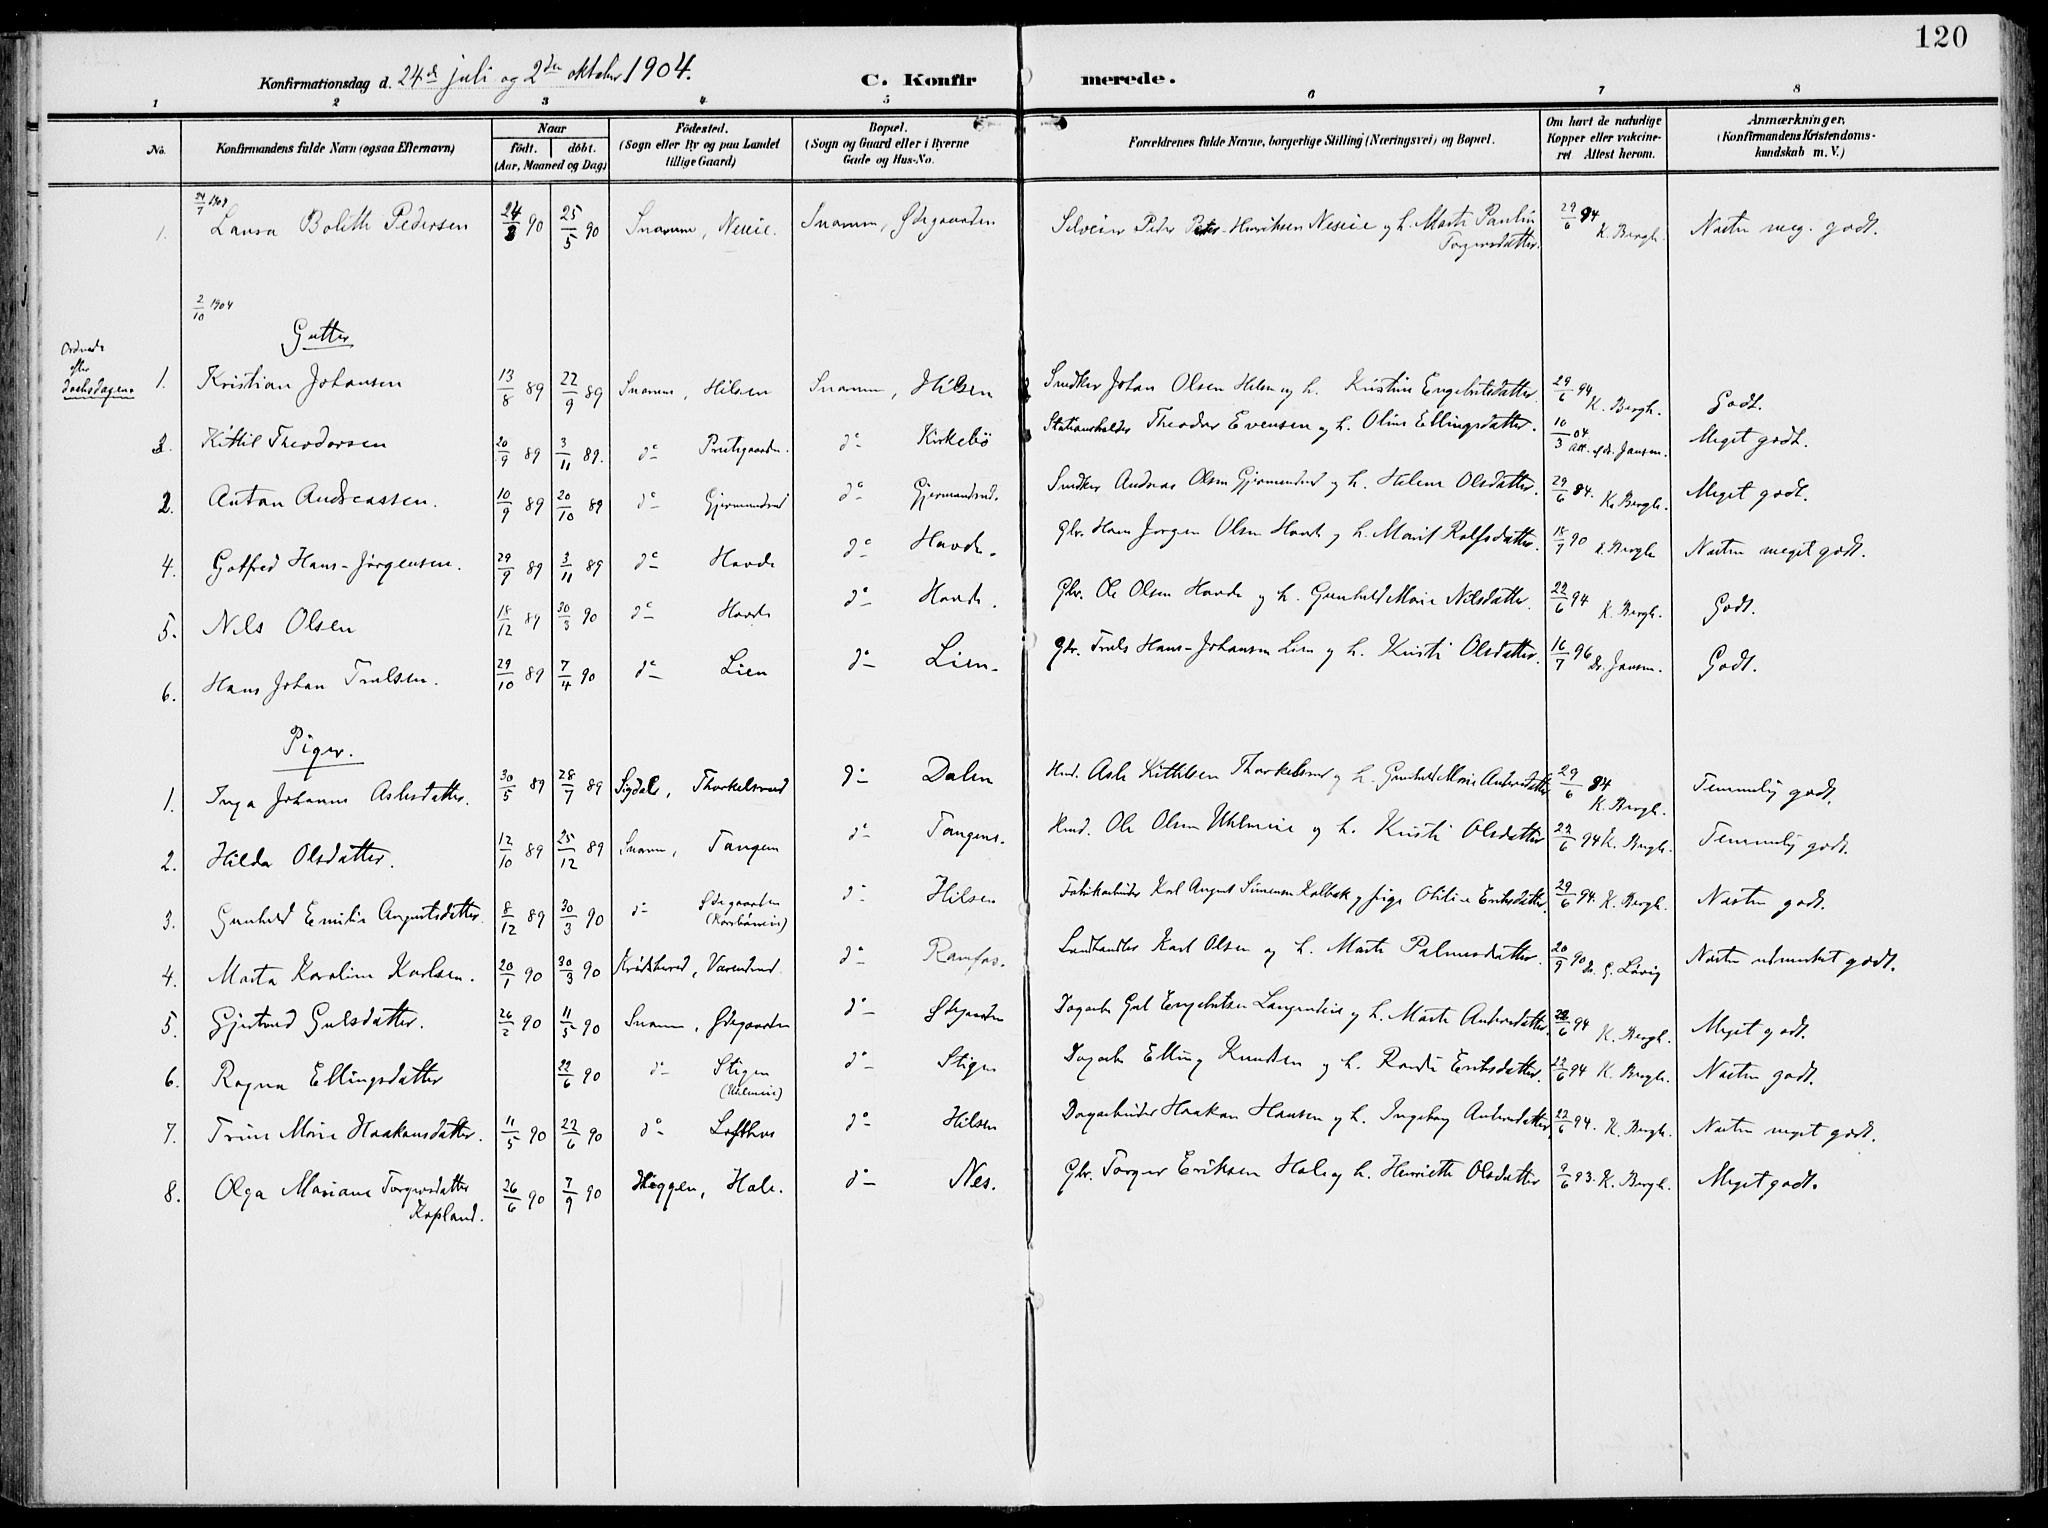 120
Konfirmationsdag d. 24de juli og 2den oktober 1904.
C. Konfirmerede.
1 2 3 4 5 6 7 8
No.
Konfirmandens fulde Navn (ogsaa Efternavn)
Naar
födt. döbt.
(Aar, Maaned og Dag)
Födested.
(Sogn eller By og paa Landet
tillige Gaard)
Bopæl.
(Sogn og Gaard eller i Byerne
Gade og Hus-No.
Forældrenes fulde Navne, borgerlige Stilling (Næringsvei) og Bopæl.
Om havt de naturlige
Kopper eller vakcine-
ret Attest herom.
Anmærkninger,
(Konfirmandens Kristendoms-
kundskab m. V.)
24/7 1904
1. Laura Bolith Pedersen 24/3 90 25/5 90 Snarum, Neseie. Snarum, Ødegaarden Selveier Peder Henriksen Neseie og h. Marte Pauline Torgersdatter. 29/6 94 K. Bergh. Næsten meg. godt.
2/10 1904
Gutter
Ordnede
efter
daabsdagene
1. Kristian Johansen 13/8 89 22/9 89 Snarum, Hilsen Snarum, Hilsen Snedker Johan Olsen Hilsen og h. Kristine Engebretsdatter. 29/6 94 K. Bergh. Godt.
3. Kittil Theodorsen 20/9 89 3/11 89. do Prestgaarden. do Kirkebö Stationsholder Theodor Evensen og h. Oline Ellingsdatter. 10/3 04 Att. af dr. Jansen. Meget godt.
2. Anton Andreassen. 10/9 89 20/10 89 do Gjermundrud do Gjermundrud. Snedker Andreas Olsen Gjermundrud og h. Helene Olsdatter. 29/6 94. K. Bergh. Meget godt.
4. Gotfred Hans-Jørgensen. 29/9 89 3/11 89 do Hovde do Hovde. Gbr. Hans Jørgen Olsen Hovde og h. Marit Rolfsdatter. 18/7 90 K. Bergh Næsten meget godt.
5. Nils Olsen 18/12 89 30/3 90 do Hovde do Hovde. Gbr. Ole Olsen Hovde og h. Gunhild Marie Nilsdatter. 22/6 94 K. Bergh. Godt.
6. Hans Johan Trulsen. 29/10 89 7/4 90 do Lien do Lien. Gbr. Truls Hans-Johansen Lien og h. Kristi Olsdatter. 16/7 96 Dr. Jansen. Godt.
Piger.
1. Inga Johanne Aslesdatter. 30/5 89 28/7 89 Sigdal, Thorkelsrud do Dalen Hmd. Asle Kittilsen Thorkelsrud og h. Gunhild Marie Andersdatter 29/6 94 K. Bergh. Temmelig godt.
2. Hilda Olsdatter. 12/10 89 25/12 89 Snarum, Tangen do Tangen. Hmd. Ole Olsen Uhlneie og h. Kristi Olsdatter 22/6 94 K. Bergh. Temmelig godt.
3. Gunhild Emilie Augustsdatter. 8/12 89 30/3 90 do Ødegaarden do Hilsen Fabrikarbeider Karl August Simensen Kolbæk og pige Otilie Eriksdatter. 29/6 94. K. Bergh. Næsten godt.
4. Marta Karoline Karlsen. 20/1 90 30/3 90 Krødsherred, do Ramfos. Landhandler Karl Olsen og h. Marte Palmesdatter. 20/9 90 Dr. G. Lövig Næsten udmerket godt.
5. Gjertrud Gulsdatter. 26/2 90 11/5 90 Snarum, Ødegaarden do Ødegaarden Dagarb. Gul Engebretsen og h. Marte Andersdatter. 22/6 94 K. Bergh. Meget godt.
6. Ragna Ellingsdatter 22/6 90 do Stigen (Uhlneeie) do Stigen Dagarb. Elling Knudsen og h. Randi Eriksdatter. 22/6 94 K. Bergh. Næsten godt.
7. Trine Marie Haakonsdatter. 11/5 90 22/6 90 do Lofthus do Hilsen Dagarbeider Haakon Hansen og h. Ingeborg Andersdatter. 22/6 94. K. Bergh. Næsten meget godt.
8. Olga Mariane Torgersdatter Kopland. 26/6 90 7/9 90 Heggen, Hole. do Nes. Gbr. Torger Eriksen Hole og h. Henriette Olsdatter 9/6 93. K. Bergh. Meget godt.